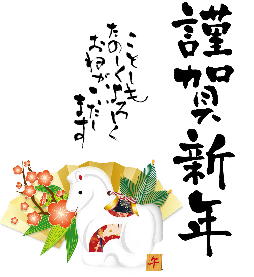 謹賀新年
ことしも
たのしくよろしく
おねがいいたし
ます
午